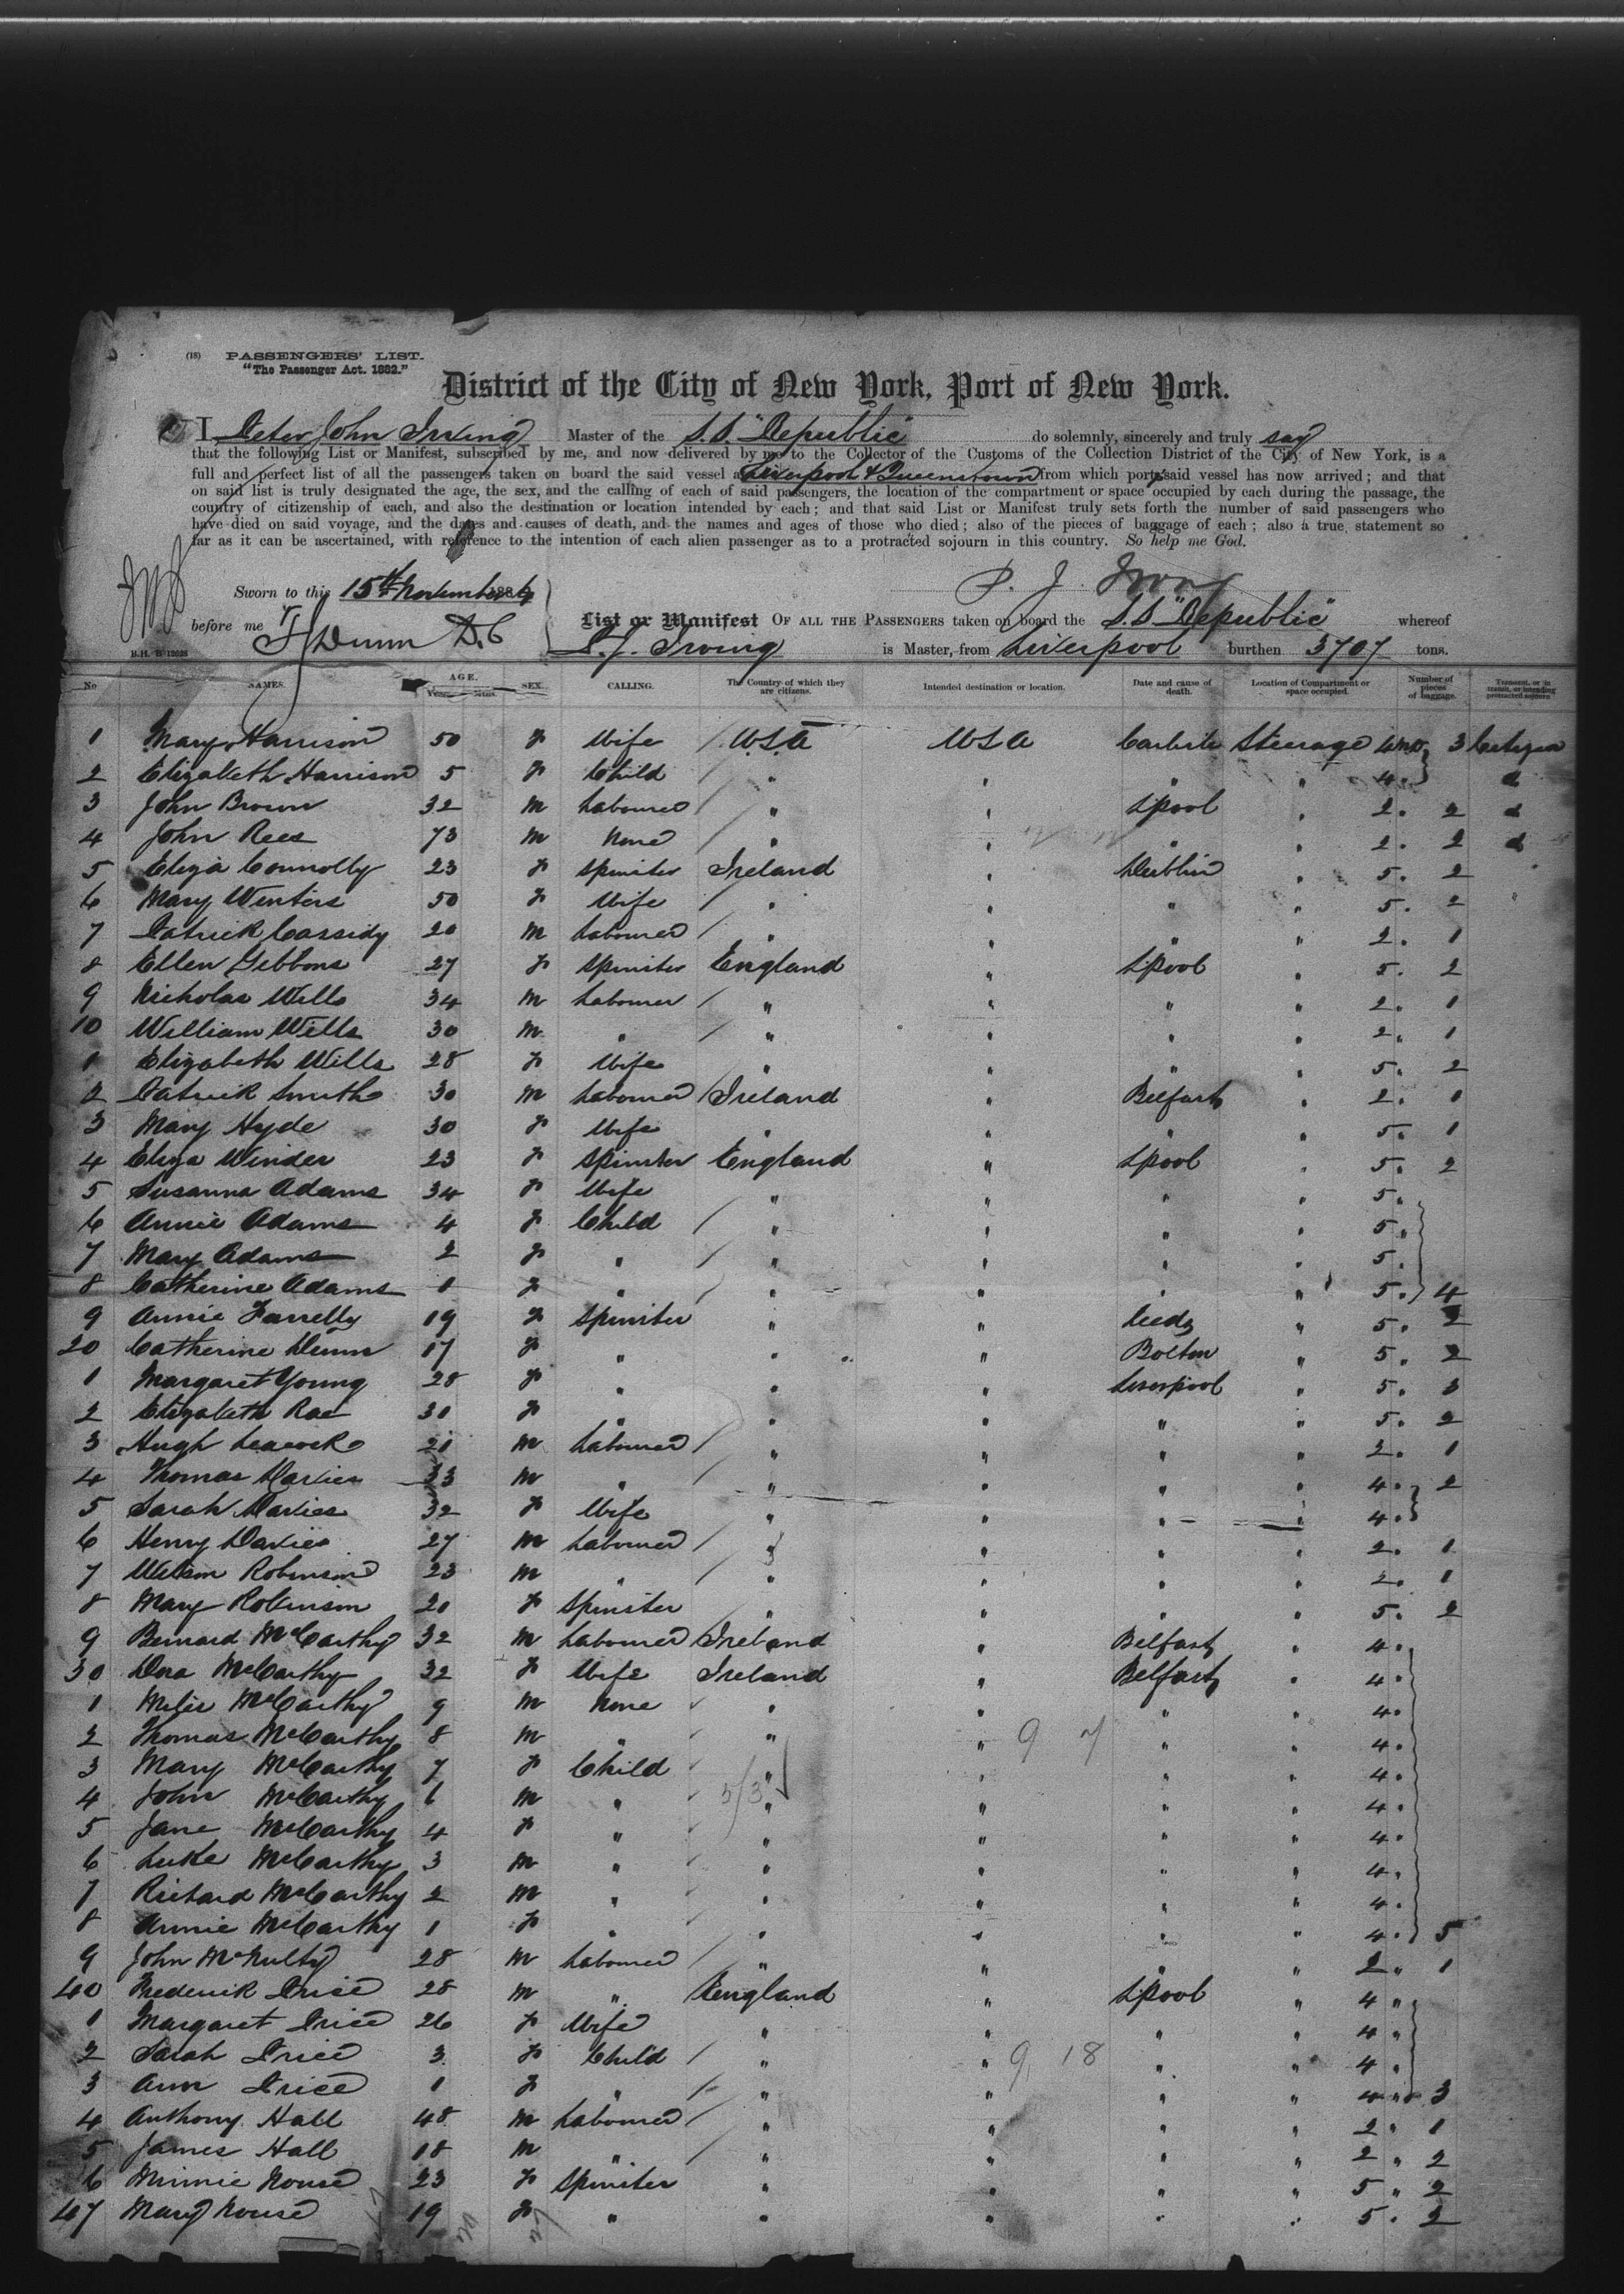 (18) PASSENGERS' LIST.
"The Passenger Act. 1882."
District of the City of New York, Port of New York.
I Peter John Irving Master of the S.S. "Republic" do solemnly, sincerely and truly say
that the following List or Manifest, subscribed by me, and now delivered by me to the Collector of the Customs of the Collection District of the City of New York, is a
full and perfect list of all the passengers taken on board the said vessel at Liverpool & Queenstown from which ports said vessel has now arrived; and that
on said list is truly designated the age, the sex, and the calling of each of said passengers, the location of the compartment or space occupied by each during the passage, the
country of citizenship of each, and also the destination or location intended by each; and that said List or Manifest truly sets forth the number of said passengers who
have died on said voyage, and the dates and causes of death, and the names and ages of those who died; also of the pieces of baggage of each; also a true statement so
far as it can be ascertained, with reference to the intention of each alien passenger as to a protracted sojourn in this country. So help me God.
P. J. Irving
Sworn to this 15th November 188
before me Dunn D.C
List or Manifest OF ALL THE PASSENGERS taken on board the S.S "Republic" whereof
P.J. Irving is Master, from Liverpool burthen 3707 tons.
B.H.-B 12028
No NAMES. AGE. Years. Mos. SEX. CALLING. The Country of which they are citizens. Intended destination or location. Date and cause of death. Location of Compartment or space occupied. Number of pieces of baggage. Transient, or in transit, or intending protracted sojourn
1 Mary Harrison 50 F Wife / USA USA Carlisle Steerage 4 3 Citizen
2 Elizabeth Harrison 5 F Child / " " " " 4 "
3 John Brown 32 M Labourer / " " Lpool " 2 " 2
4 John Rees 73 M None / " " " " 2 " 2
5 Eliza Connolly 23 F Spinster Ireland " Dublin " 5 " 2
6 Mary Winters 50 F Wife / " " " " 5 " 2
7 Patrick Cassidy 20 M Labourer / " " " " 2 " 1
8 Ellen Gibbons 27 F Spinster England " Lpool " 5 " 2
9 Nicholas Wills 34 M Labourer / " " " " 2 " 1
10 William Wills 30 M " / " " " " 2 " 1
1 Elizabeth Wills 28 F Wife " " " " 5 " 2
2 Patrick Smith 30 M Labourer / Ireland " Belfast " 2 " 1
3 Mary Hyde 30 F Wife " " " " 5 " 1
4 Eliza Winder 23 F Spinster England " Lpool " 5 " 2
5 Susanna Adams 34 F Wife " " " " 5 "
6 Annie Adams 4 F Child / " " " " 5 "
7 Mary Adams 2 F " / " " " " 5 "
8 Catherine Adams 1 F " / " " " " 5 " 4
9 Annie Farrelly 19 F Spinster " " Leeds " 5 " 2
20 Catherine Dunn 17 F " " " Bolton " 5 " 2
1 Margaret Young 28 F " " " Liverpool " 5 " 3
2 Elizabeth Rae 30 F " " " " " 5 " 2
3 Hugh Leacock 21 M Labourer / " " " " 2 " 1
4 Thomas Davies 33 M " / " " " " 4 " 2
5 Sarah Davies 32 F Wife " " " " 4 "
6 Henry Davies 27 M Labourer / " " " " 2 " 1
7 Robinson 23 M " / " " " " 2 " 1
8 Mary Robinson 20 F Spinster " " " " 5 " 2
9 Bernard McCarthy 32 M Labourer Ireland " Belfast " 4 "
30 Dora McCarthy 32 F Wife Ireland " Belfast " 4 "
1 Miles McCarthy 9 M None " " " " 4 "
2 Thomas McCarthy 8 M " " " 9 7 " " 4 "
3 Mary McCarthy 7 F Child " " " " 4 "
4 John McCarthy 6 M " 5/3 " " " " 4 "
5 Jane McCarthy 4 F " " " " " 4 "
6 Luke McCarthy 3 M " " " " " 4 "
7 Richard McCarthy 2 M " " " " " 4 "
8 Annie McCarthy 1 F " " " " " 4 " 5
9 John McNulty 28 M Labourer / " " " " 2 " 1
40 Frederick Price 28 M " England " Lpool " 4 "
1 Margaret Price 26 F Wife " " " " 4 "
2 Sarah Price 3 F Child / " " 9 18 " " 4 "
3 Ann Price 1 F " / " " " " 4 " 3
4 Anthony Hall 48 M Labourer / " " " " 2 " 1
5 James Hall 18 M " / " " " " 2 " 2
6 Minnie 23 F Spinster " " " " 5 " 2
47 Mary 19 F " " " " " 5 " 2